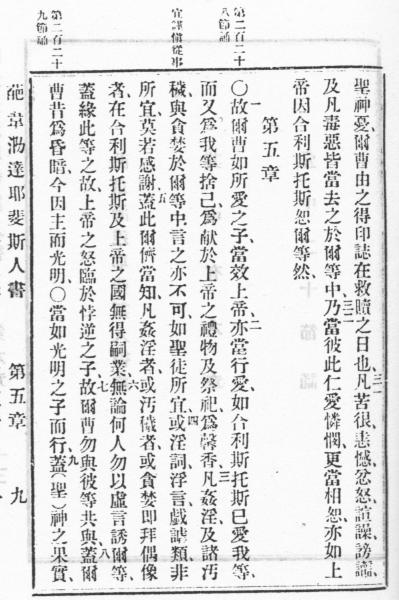 第二百二十
八節誦
宣譯備從事
第二百二十
九節誦
聖神憂、爾曹由之得印誌在救贖之日也、凡苦很恚憾忿怒諠譟謗讟、
及凡毒惡皆當去之於爾等中、乃當彼此仁愛憐憫、更當相恕亦如上
帝因合利斯托斯恕爾等然、
第五章
〇故爾曹如所愛之子當效上帝、亦當行愛如合利斯托斯已愛我等、
而又爲我等捨己爲献於上帝之禮物及祭祀爲馨香、凡姦淫及諸汚
穢與貪婪於爾等中言之亦不可、如聖徒所宜、或淫詞浮言戲謔類非
所宜莫若感謝、蓋此爾儕當知、凡姦淫者或汚穢者或貪婪即拜偶像
者在合利斯托斯及上帝之國無得嗣業、無論何人勿以虛言誘爾等、
蓋緣此等之故上帝之怒臨於悖逆之子、故爾曹勿與彼等共與、蓋爾
曹昔爲昏暗今因主而光明、〇當如光明之子而行、蓋（聖）神之果實、
達耶斐斯人書 第五章 九